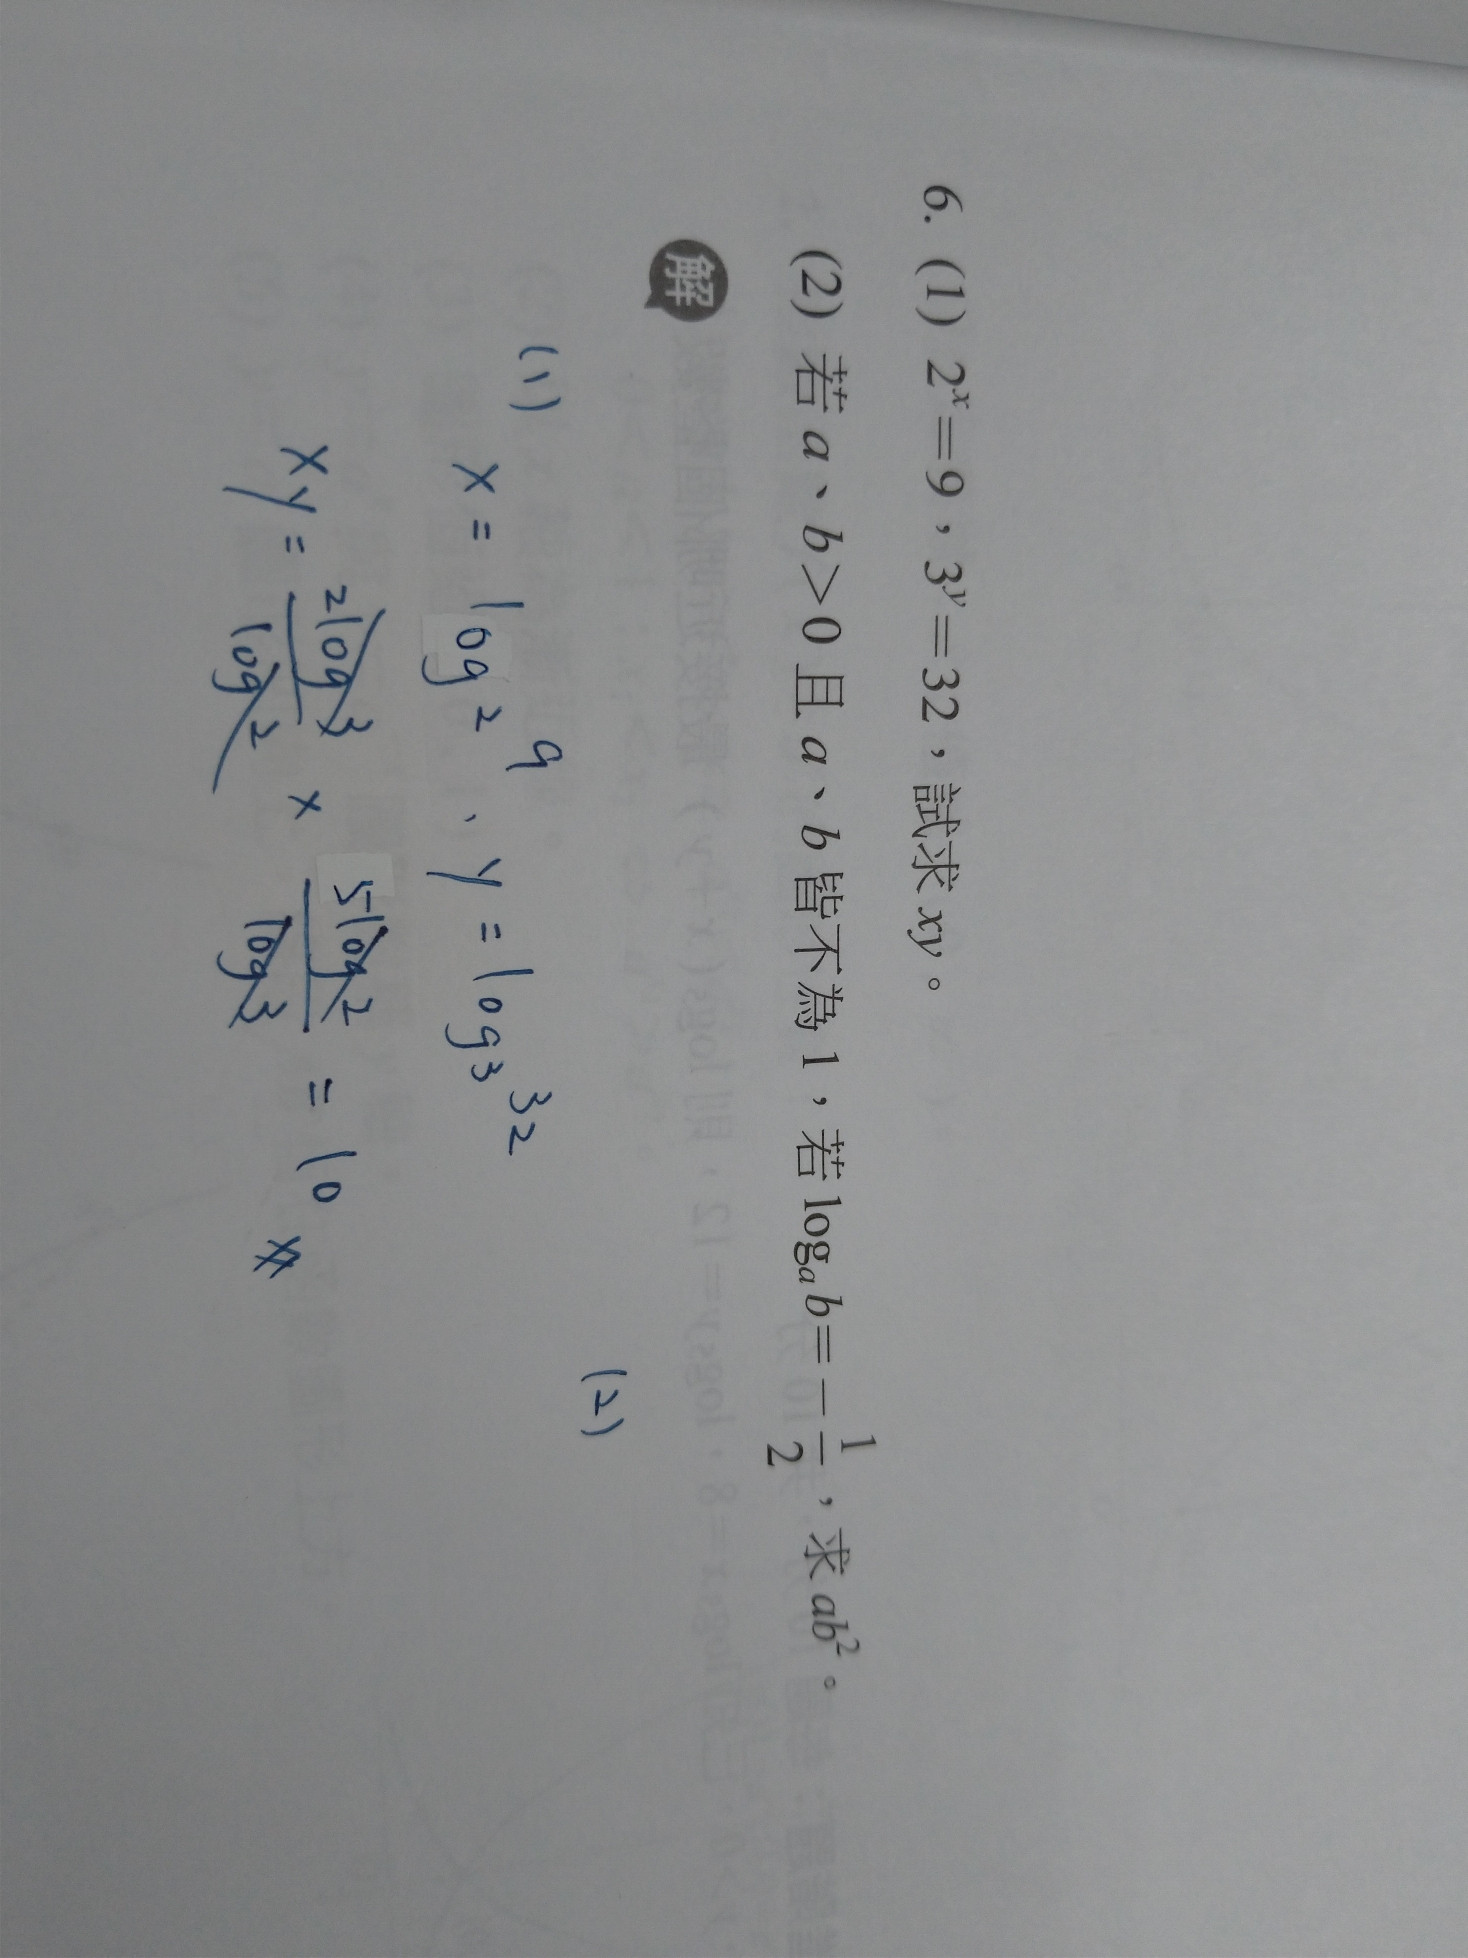 6. (1) 2ˣ=9，3ʸ=32，試求 xy。
(2) 若 a、b>0 且 a、b 皆不為 1，若 logₐ b=−1/2，求 ab²。
解
(1) x = log₂ 9、y = log₃ 32
xy = 2log3/log2 × 5log2/log3 = 10 #
(2)